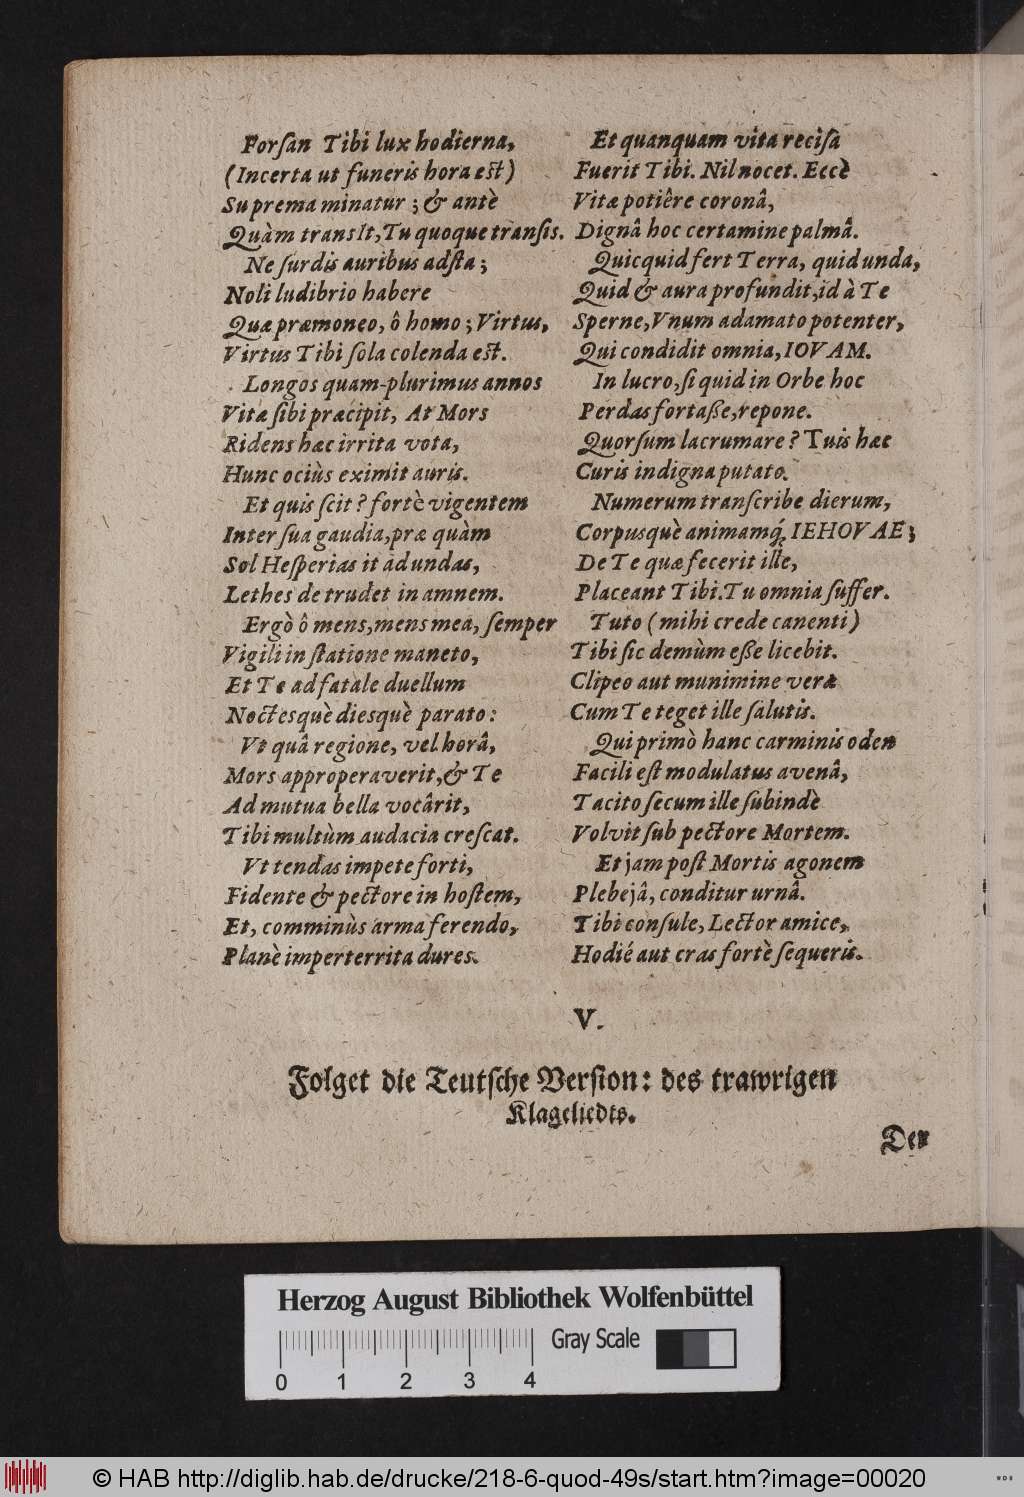 Forſan Tibi lux hodierna,
(Incerta ut funeris hora eſt)
Suprema minatur ; & antè
Quàm transIt, Tu quoque tranſis.
Ne ſurdis auribus adſta ;
Noli ludibrio habere
Quæ præmoneo, ô homo ; Virtus,
Virtus Tibi ſola colenda eſt.
Longos quam-plurimus annos
Vitæ ſibi præcipit, At Mors
Ridens hæc irrita vota,
Hunc ociùs eximit auris.
Et quis ſcit ? fortè vigentem
Inter ſua gaudia, præ quàm
Sol Heſperias it ad undas,
Lethes detrudet in amnem.
Ergò ô mens, mens mea, ſemper
Vigili in ſtatione maneto,
Et Te ad fatale duellum
Noctesquè diesquè parato :
Vt quâ regione, vel horâ,
Mors approperaverit, & Te
Ad mutua bella vocârit,
Tibi multùm audacia creſcat.
Vt tendas impete forti,
Fidente & pectore in hoſtem,
Et, comminùs arma ferendo,
Planè imperterrita dures.
Et quanquam vita reciſa
Fuerit Tibi. Nil nocet. Eccè
Vitæ potiêre coronâ,
Dignâ hoc certamine palmâ.
Quicquid fert Terra, quid unda,
Quid & aura profundit, id à Te
Sperne, Vnum adamato potenter,
Qui condidit omnia, IOVAM.
In lucro, ſi quid in Orbe hoc
Perdas fortaße, repone.
Quorſum lacrumare ? Tuis hæc
Curis indigna putato.
Numerum tranſcribe dierum,
Corpusquè animamq́; IEHOVAE ;
De Te quæ fecerit ille,
Placeant Tibi. Tu omnia ſuffer.
Tuto (mihi crede canenti)
Tibi ſic demùm eße licebit.
Clipeo aut munimine veræ
Cum Te teget ille ſalutis.
Qui primò hanc carminis oden
Facili eſt modulatus avenâ,
Tacito ſecum ille ſubindè
Volvit ſub pectore Mortem.
Et jam poſt Mortis agonem
Plebejâ, conditur urnâ.
Tibi conſule, Lector amice,
Hodié aut cras fortè ſequeris.
V.
Folget die Teutſche Verſion: des trawrigen
Klageliedts.
Den
Herzog August Bibliothek Wolfenbüttel
Gray Scale
0 1 2 3 4
© HAB http://diglib.hab.de/drucke/218-6-quod-49s/start.htm?image=00020